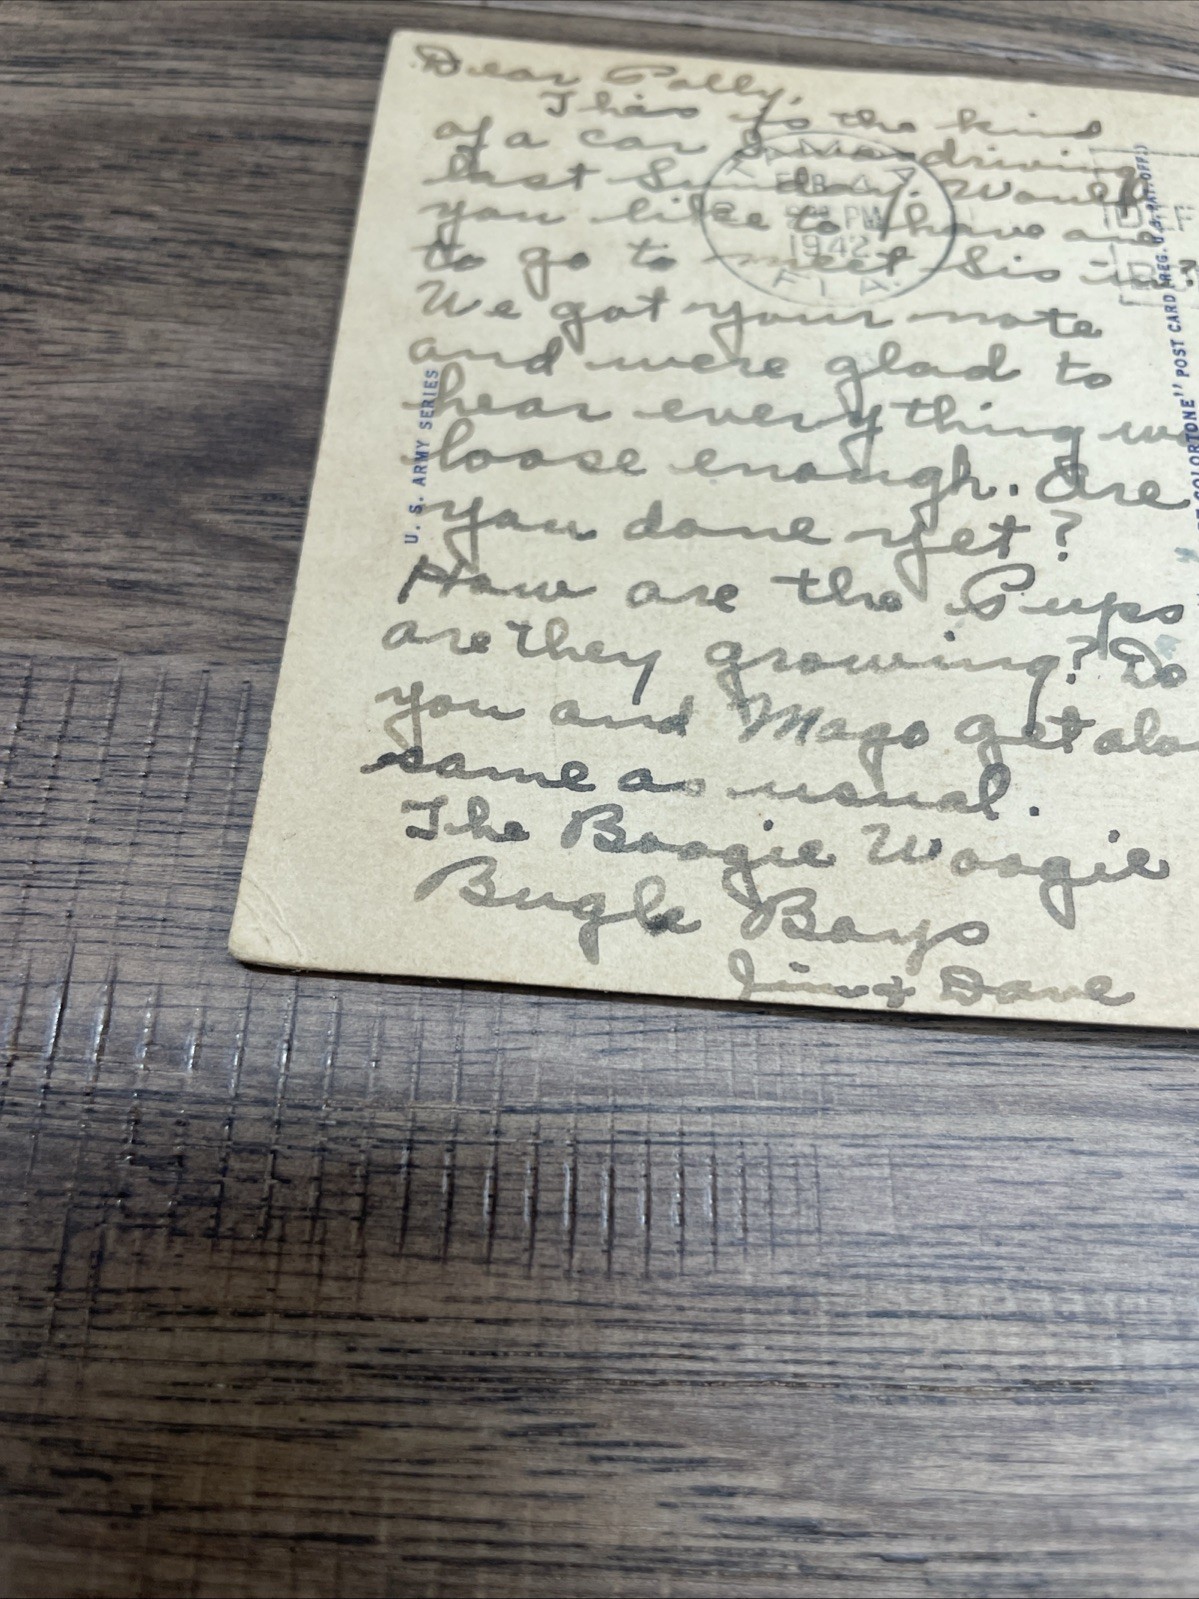 Dear Polly,
This is the kind
of a car I was driving
last Sunday. Would
you like to have one
to go to meet Sis in?
We got your note
and were glad to
hear everything w
loose enough. Are
you done yet?
How are the Pups
are they growing? Do
you and Mago get alo
same as usual.
The Boogie Woogie
Bugle Boys
Jim & Dave
TAMPA
FEB 4
PM
1942
FLA.
U. S. ARMY SERIES
COLORTONE" POST CARD (REG. U.S. PAT. OFF.)